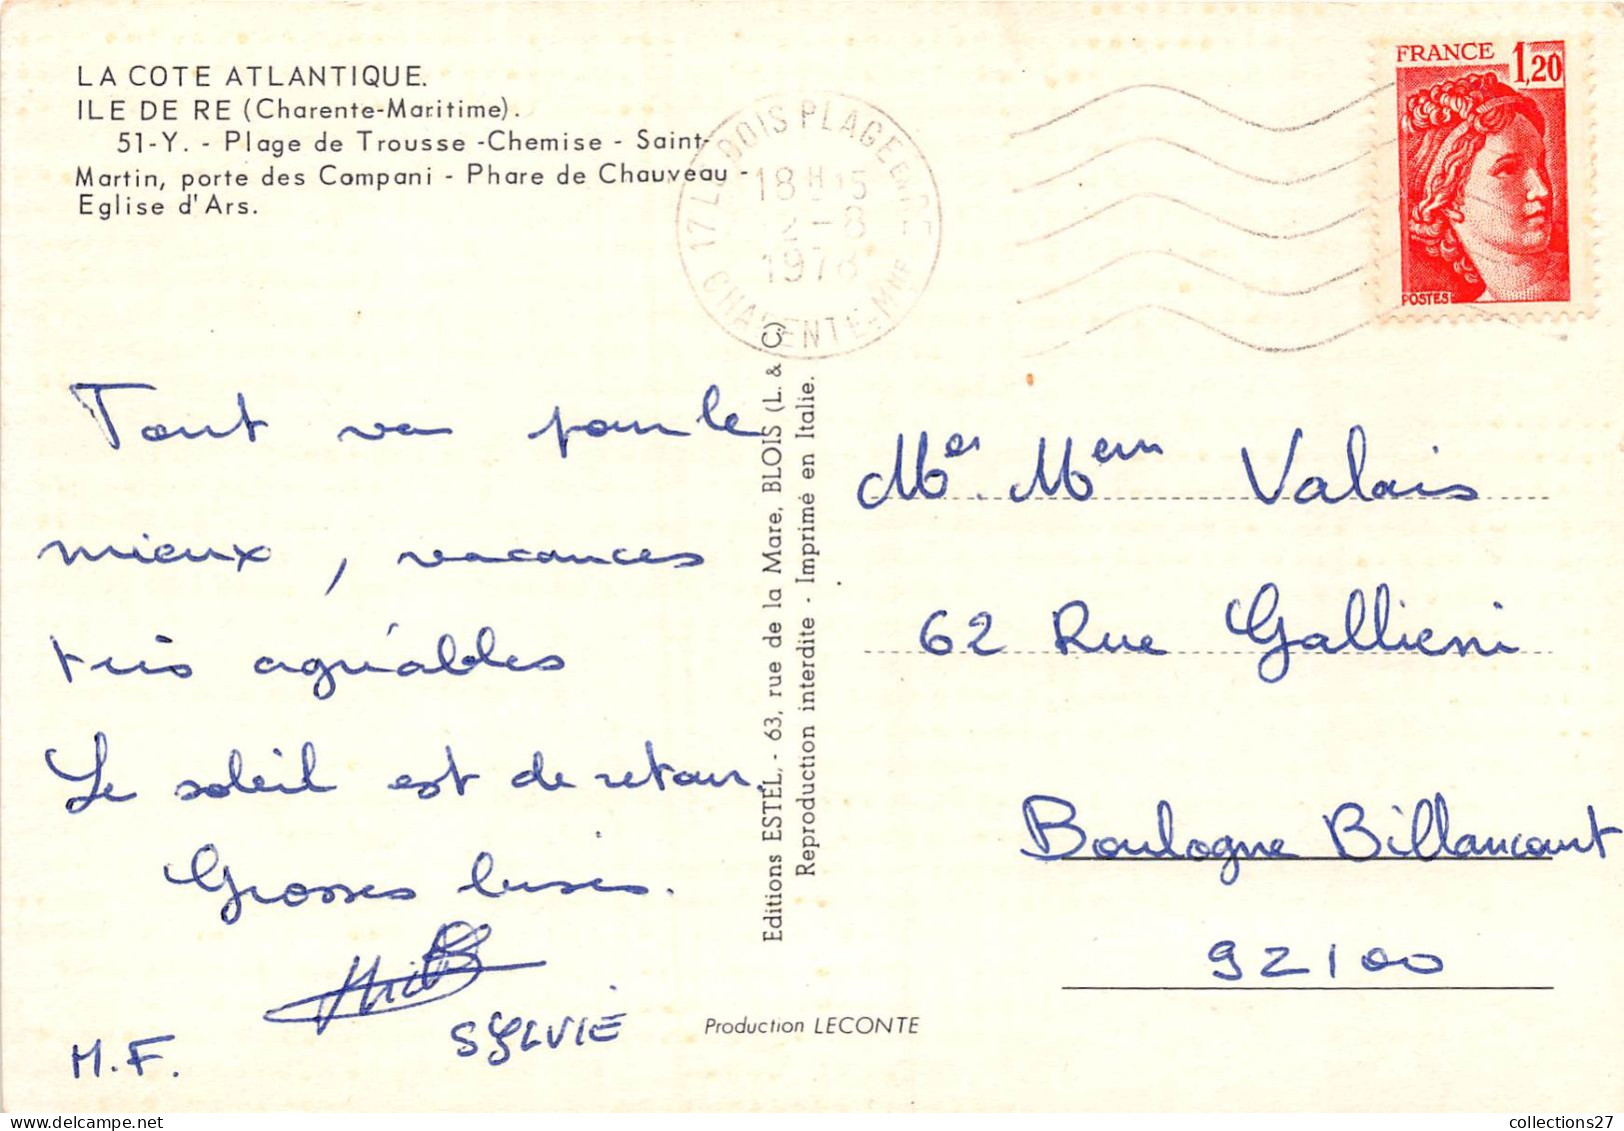 LA COTE ATLANTIQUE.
ILE DE RE (Charente-Maritime).
51-Y. - Plage de Trousse -Chemise - Saint-
Martin, porte des Compani - Phare de Chauveau -
Eglise d'Ars.
17 LE BOIS PLAGE EN RE
18 H 15
12 - 8
1978
CHARENTE-MME
FRANCE 1,20
POSTES
Tout va pour le
mieux, vacances
très agréables
Le soleil est de retour.
Grosses bises.
M.F.
SYLVIE
Editions ESTEL, - 63, rue de la Mare, BLOIS (L. & C)
Reproduction interdite - Imprimé en Italie.
Production LECONTE
Mer. Mem Valais
62 Rue Gallieni
Boulogne Billancourt
92100
collections27